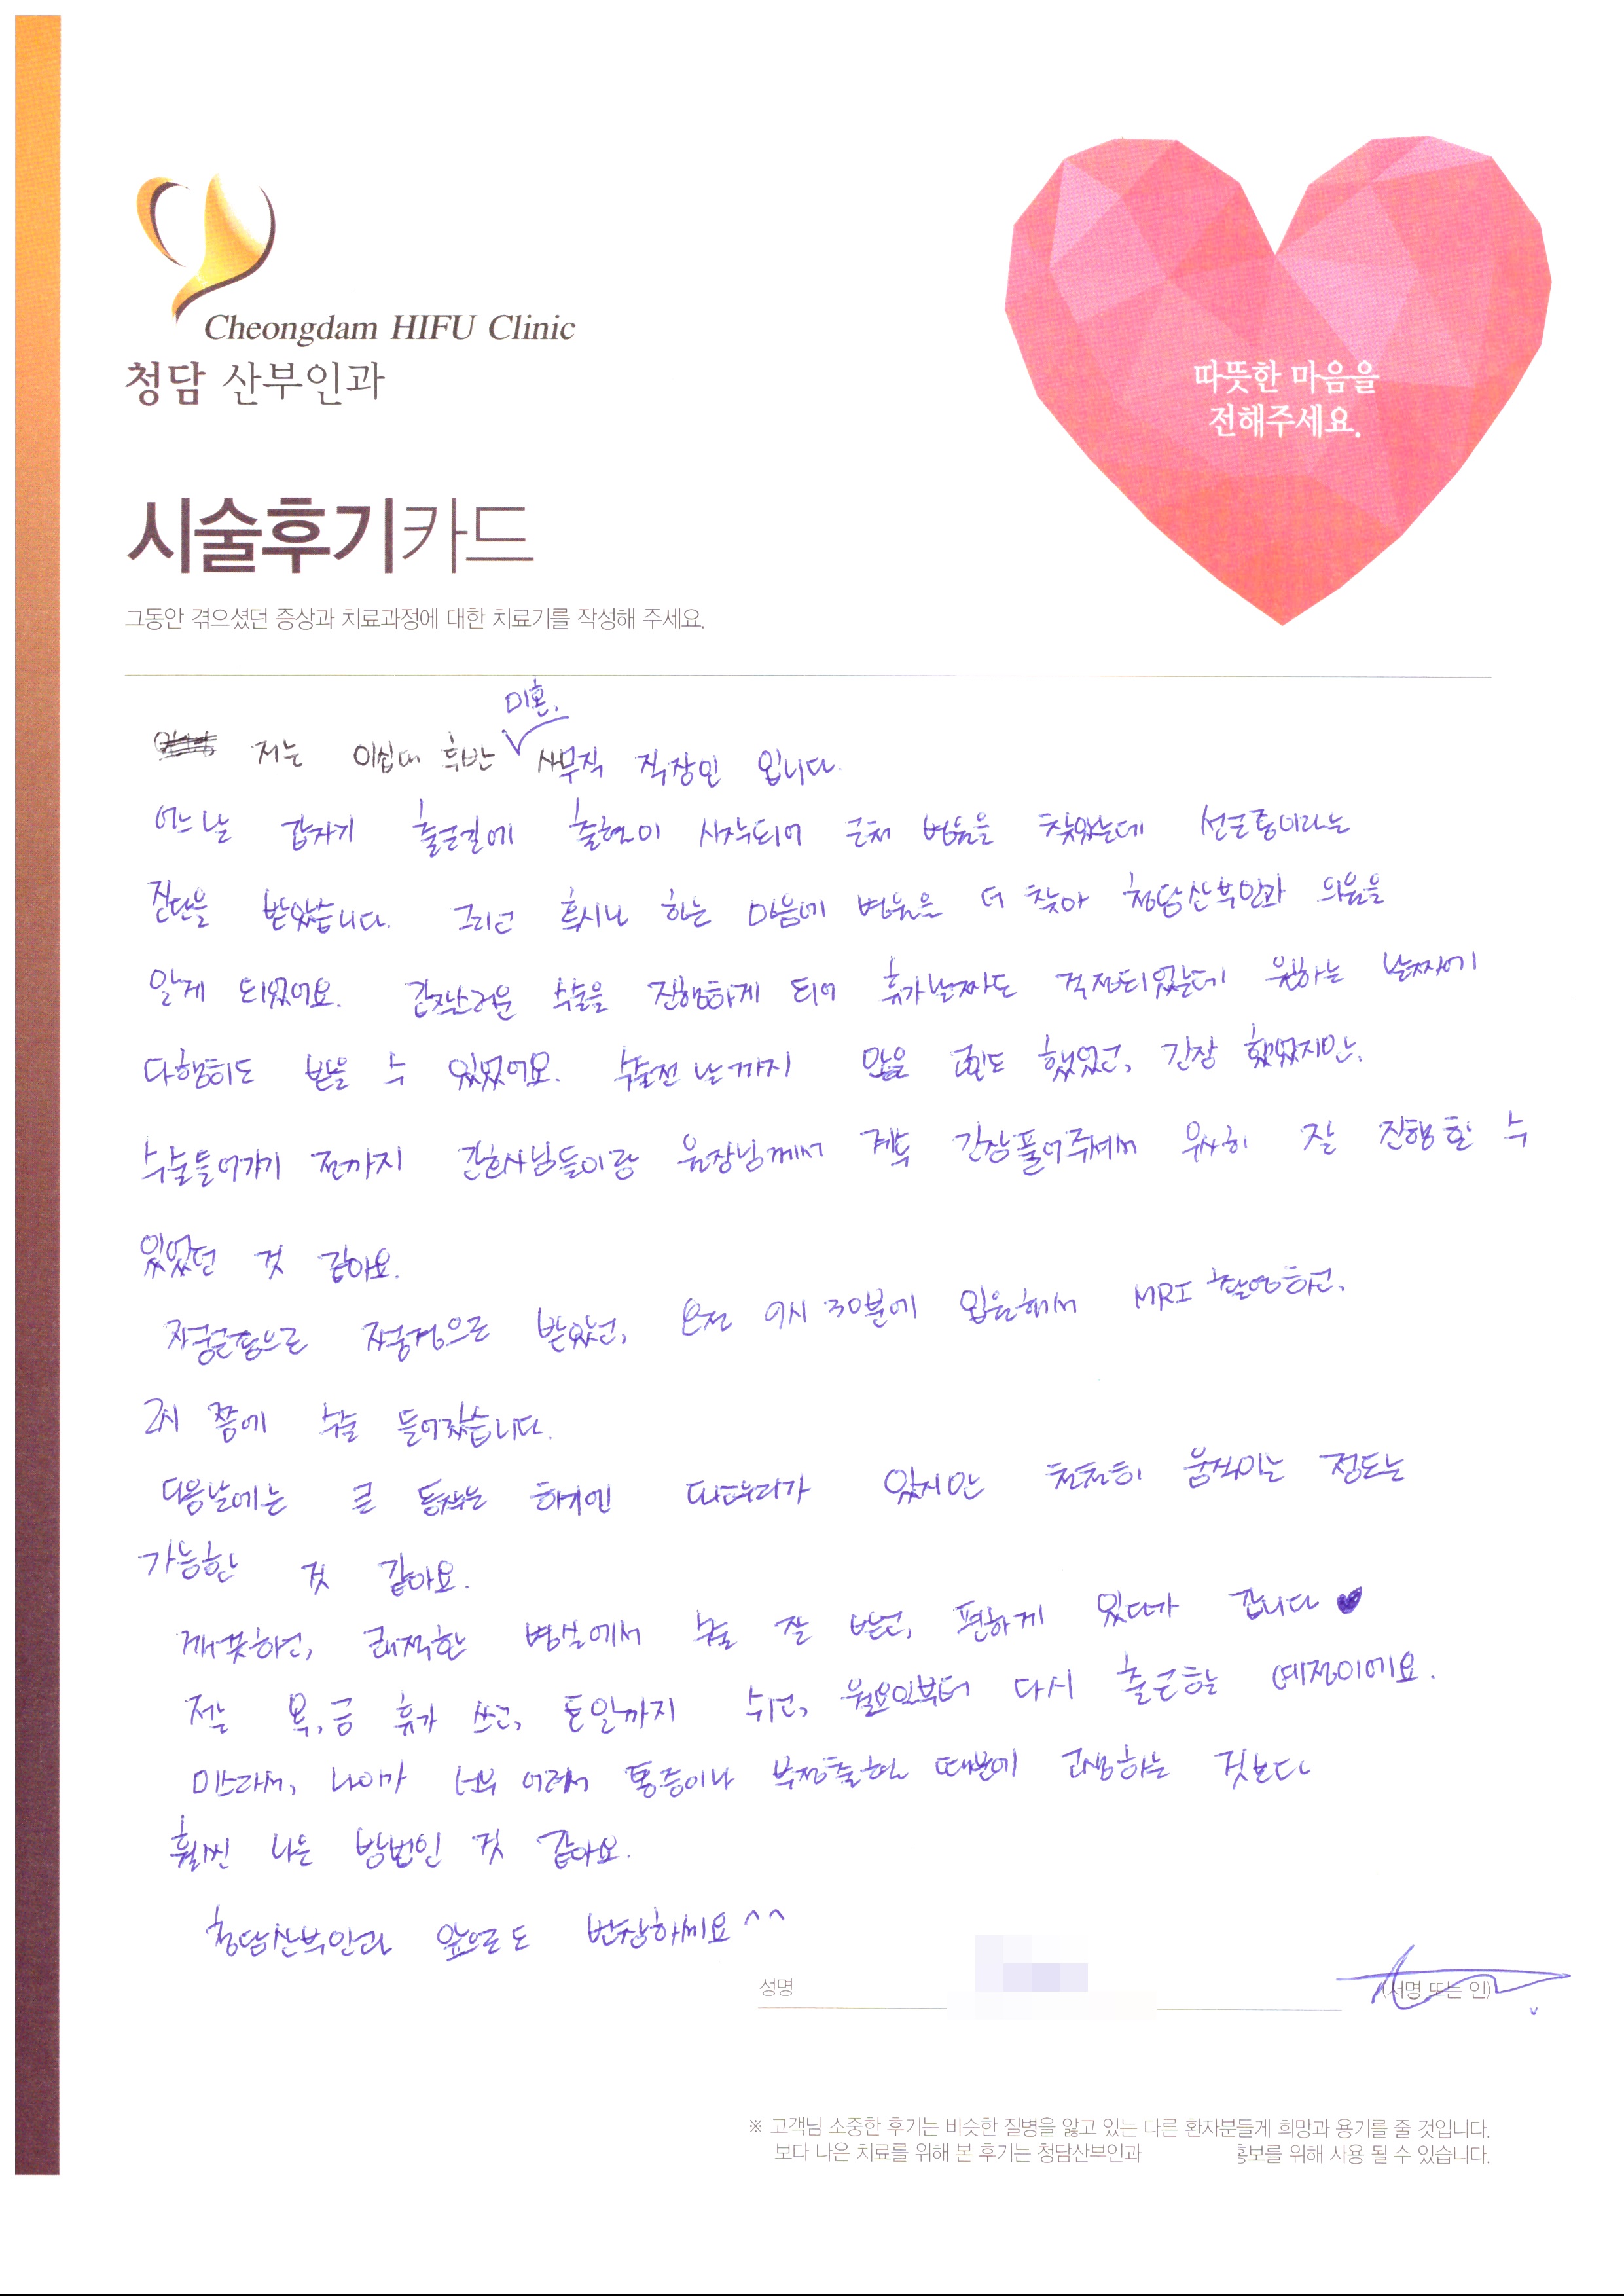 Cheongdam HIFU Clinic
청담 산부인과
따뜻한 마음을
전해주세요.
시술후기카드
그동안 겪으셨던 증상과 치료과정에 대한 치료기를 작성해 주세요.
미혼,
저는 이십대 후반 사무직 직장인 입니다.
어느날 갑자기 출근길에 출혈이 시작되어 근처 병원을 찾았는데 선근증이라는
진단을 받았습니다. 그리고 혹시나 하는 마음에 병원을 더 찾아 청담산부인과 의원을
알게 되었어요. 갑작스러운 수술을 진행하게 되어 휴가날짜도 걱정되었는데 원하는 날짜에
다행히도 받을 수 있었어요. 수술전 날까지 많을 고민도 했었고, 긴장 했었지만.
수술들어가기 전까지 간호사님들이랑 원장님께서 계속 긴장풀어주셔서 무사히 잘 진행할 수
있었던 것 같아요.
자궁근종으로 자궁경으로 받았고, 오전 9시 30분에 입원해서 MRI 촬영하고,
2시 쯤에 수술 들어갔습니다.
다음날에는 큰 동작은 하기엔 있지만 천천히 움직이는 정도는
가능한 것 같아요.
깨끗하고, 쾌적한 병실에서 수술 잘 받고, 편하게 있다가 갑니다 ♥
저는 목,금 휴가 쓰고, 토일까지 쉬고, 월요일부터 다시 출근할 예정이에요.
미스라서, 나이가 너무 어려서 통증이나 부정출혈 때문에 고생하는 것보다
훨씬 나은 방법인 것 같아요.
청담산부인과 앞으로도 번창하세요 ^^
성명 (서명 또는 인)
※ 고객님 소중한 후기는 비슷한 질병을 앓고 있는 다른 환자분들게 희망과 용기를 줄 것입니다.
보다 나은 치료를 위해 본 후기는 청담산부인과 홍보를 위해 사용 될 수 있습니다.